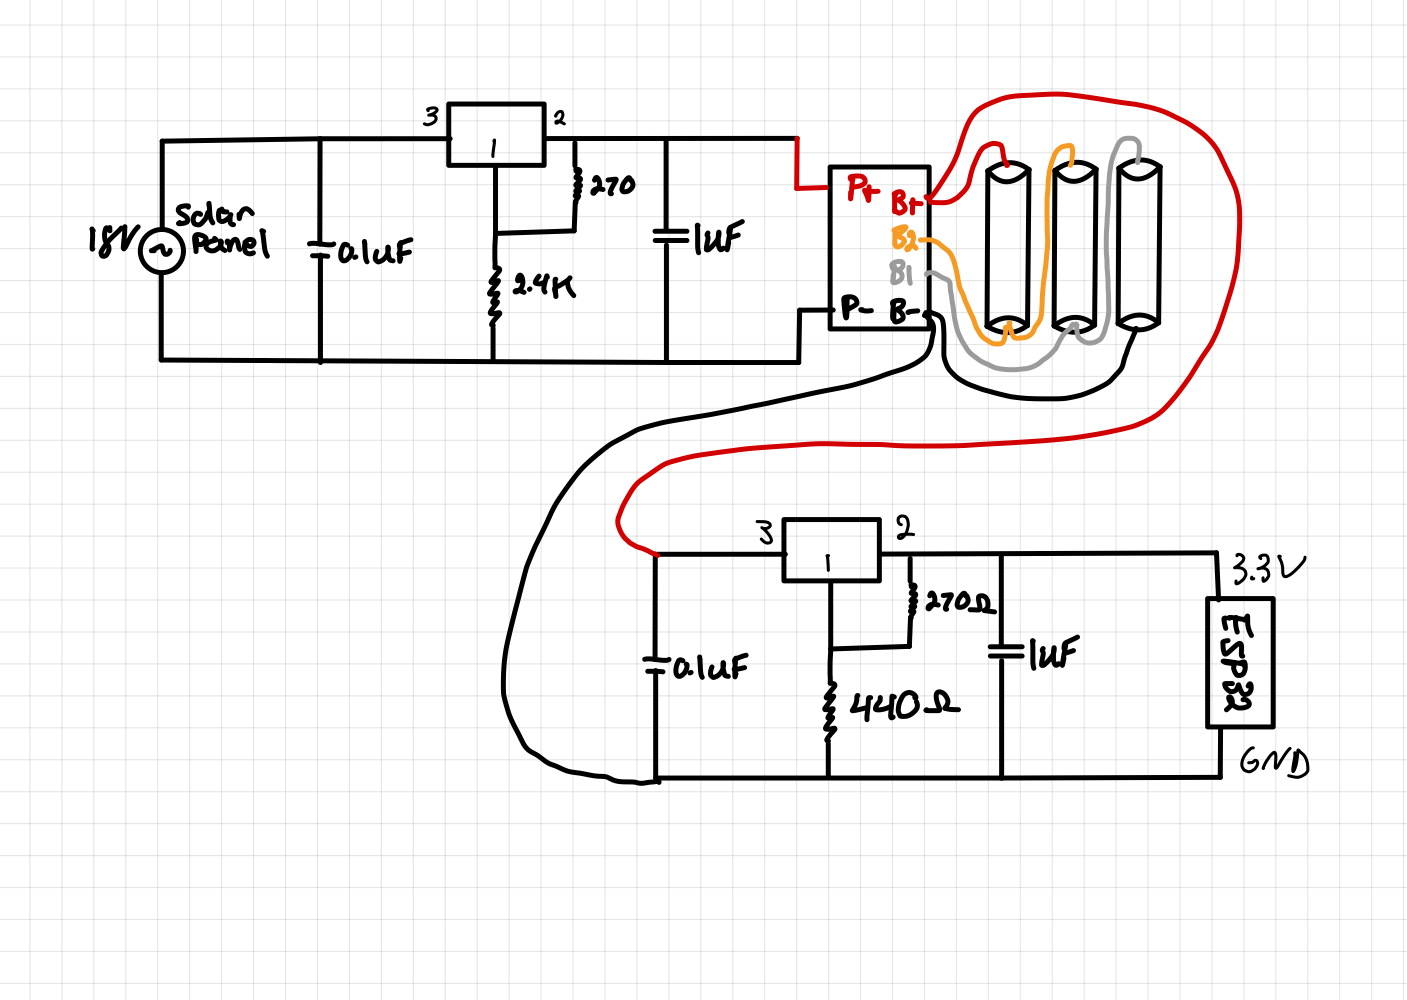 3
2
1
18V
Solar
Panel
0.1uF
270
2.4K
1uF
P+
B+
B2
B1
P-
B-
3
2
1
3.3V
270Ω
0.1uF
440Ω
1uF
ESP32
GND